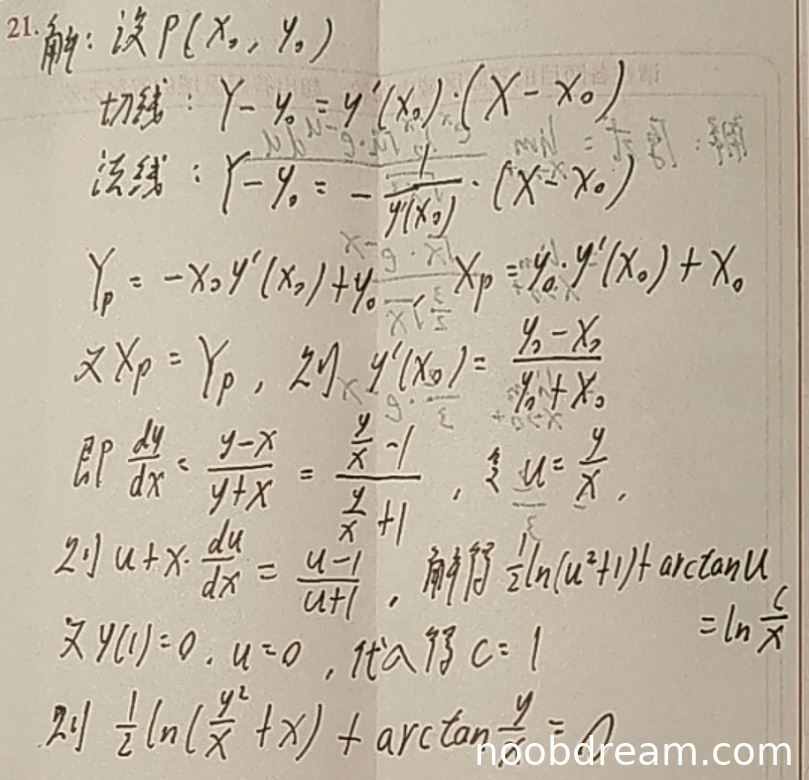 21. 解：设P(x₀, y₀)
切线：Y-y₀=y'(x₀)·(X-x₀)
法线：Y-y₀=-1/y'(x₀)·(X-x₀)
Yp=-x₀y'(x₀)+y₀ Xp=y₀·y'(x₀)+x₀
又Xp=Yp，则y'(x₀)=(y₀-x₀)/(y₀+x₀)
即dy/dx=(y-x)/(y+x)=(y/x-1)/(y/x+1)，令u=y/x，
则u+x·du/dx=(u-1)/(u+1)，解得1/2ln(u²+1)+arctanu
=ln c/x
又y(1)=0，u=0，代入得c=1
则1/2ln(y²/x+x)+arctan y/x=0
noobdream.com